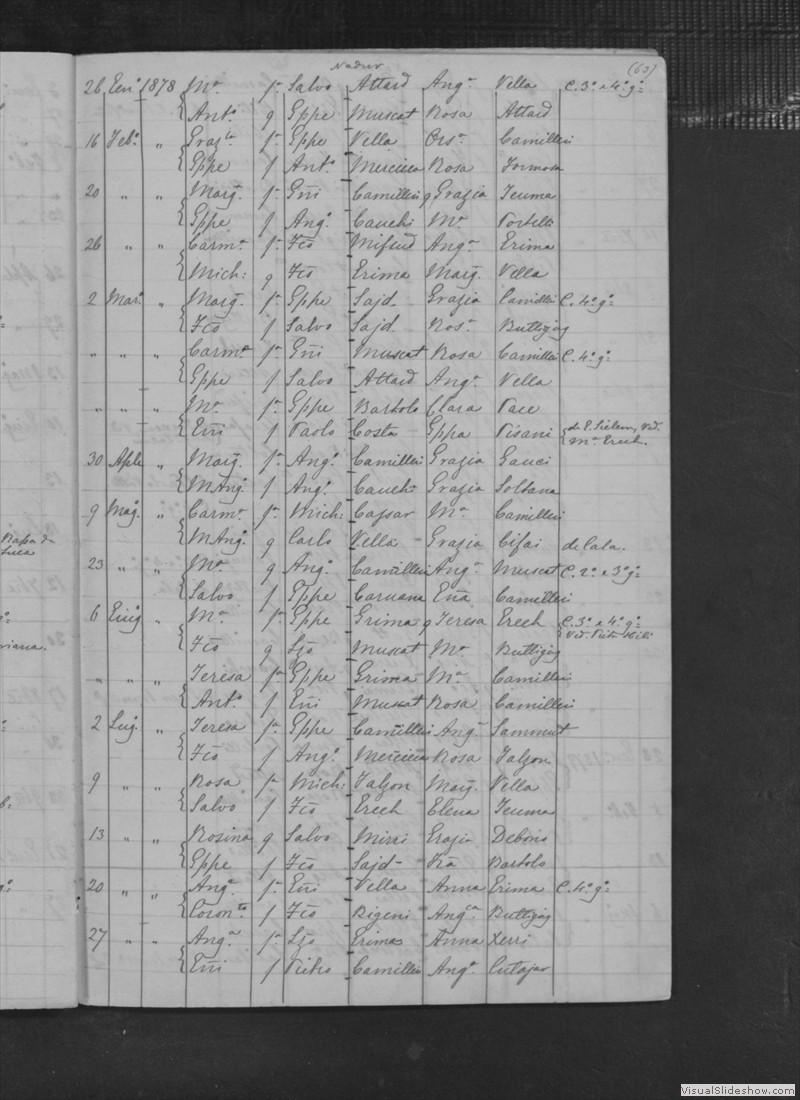 Nadur
(63)
26 Gen: 1878 Ma fa Salvo Attard Anga Vella C. 3o e 4o go
Anto q Gppe Muscat Rosa Attard
16 Feb: " Grazla fa Gppe Vella Orsa Camilleri
Gppe f Anto Mercieca Rosa Formosa
20 " " Marg. fa Gñi Camilleri q Grazia Teuma
Gppe f Ango Cauchi Ma Portelli
26 " " Carma fa Fco Mifsud Anga Grima
Mich: q Fco Grima Marg. Vella
2 Mar: " Marg. fa Gppe Said Grazia Camilleri C. 4o go
Fco f Salvo Said Rosa Buttigieg
" " " Carma fa Gñi Muscat Rosa Camilleri C. 4o go
Gppe f Salvo Attard Anga Vella
" " " Ma fa Gppe Bartolo Clara Pace
Gñi f Paolo Costa Gppa Pisani
30 Aple " Marg. fa Ango Camilleri Grazia Gauci
MAng. f Ango Cauchi Grazia Soltana
9 Mag. " Carma fa Mich: Cassar Ma Camilleri
MAng. q Carlo Vella Grazia Cifai de Cala.
23 " " Ma q Ango Camilleri Anga Muscat C. 2o e 3o go
Salvo f Gppe Caruana Eña Camilleri
6 Giug " Ma fa Gppe Grima q Teresa Grech C. 3o e 4o go
Fco q Lzo Muscat Ma Buttigieg
" " " Teresa fa Gppe Grima Ma Camilleri
Anto f Gñi Muscat Rosa Camilleri
2 Lug. " Teresa fa Gppe Camilleri Anga Sammut
Fco f Ango Mercieca Rosa Falzon
9 " " Rosa fa Mich: Falzon Marg. Vella
Salvo f Fco Grech Elena Teuma
13 " " Rosina q Salvo Mizzi Grazia Debono
Gppe f Fco Said Fca Bartolo
20 " " Anga fa Gñi Vella Anna Grima C. 4o go
Coronto f Fco Bigeni Angca Buttigieg
27 " " Anga fa Lzo Grima Anna Xerri
Gñi f Pietro Camilleri Anga Cutajar
VisualSlideshow.com